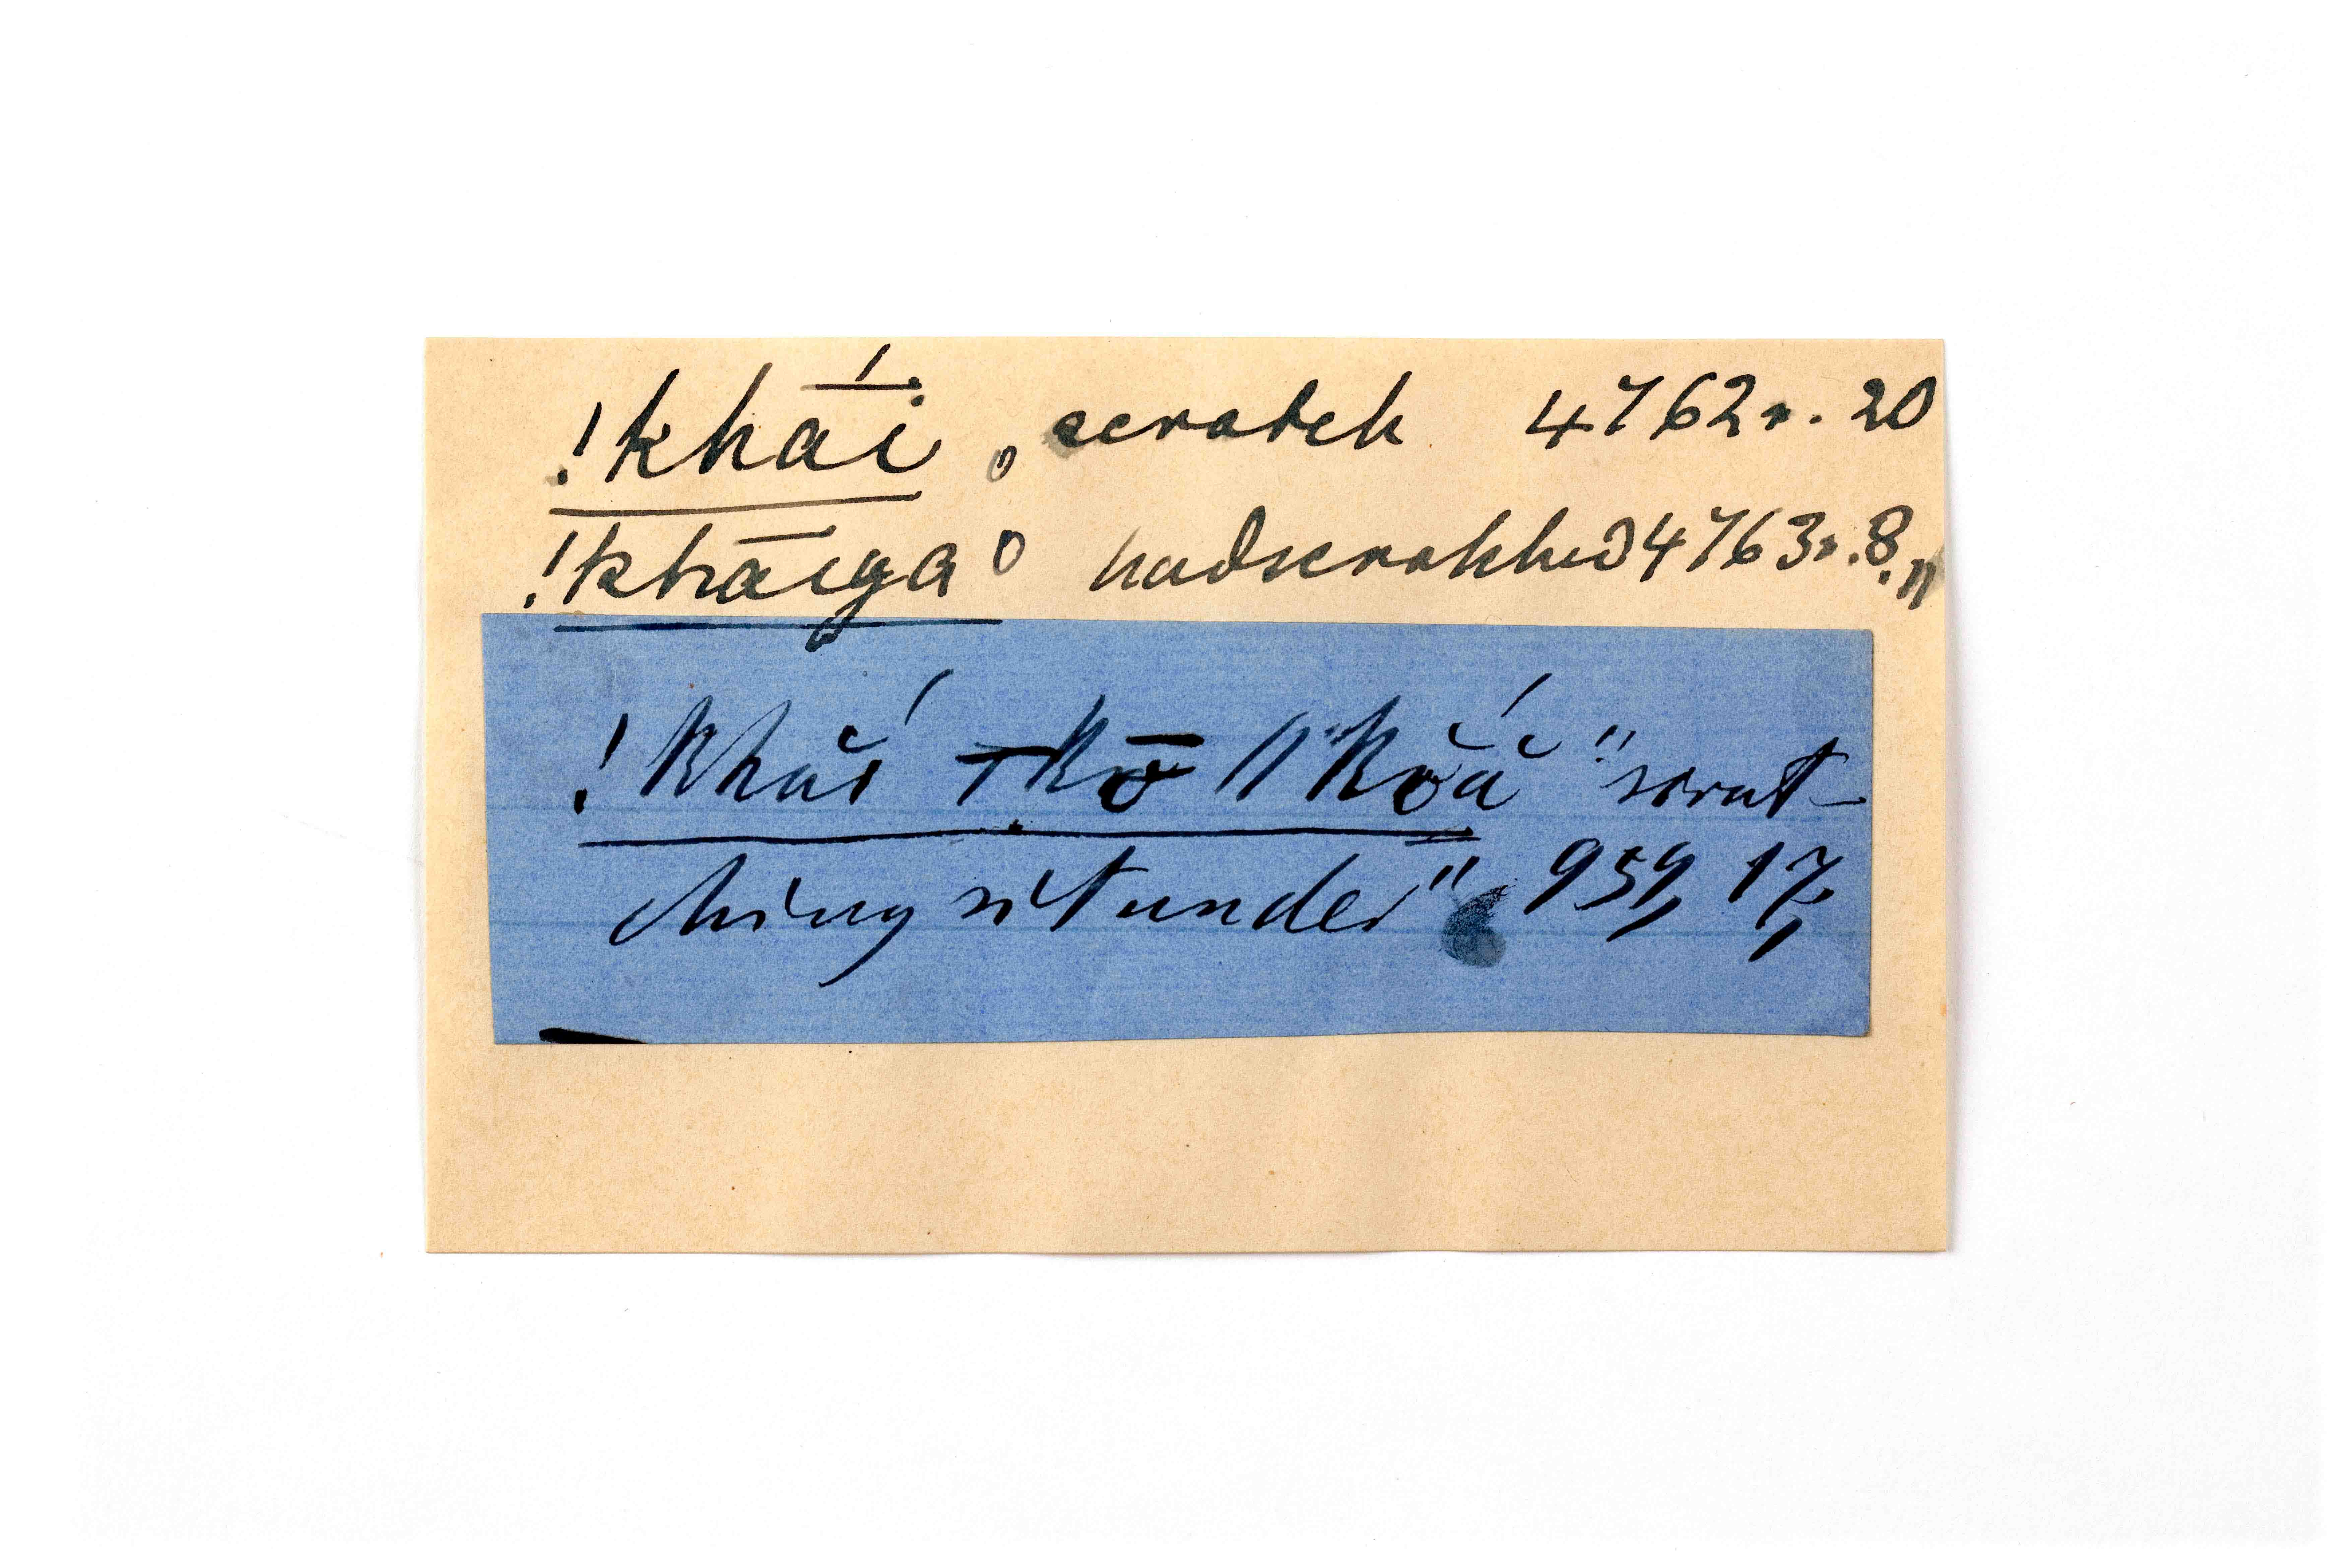 !khā́i, scratch 4762r. 20
!khāiga had scratched 4763r. 8, 11
!khăĭ́ kō ||kŏắ "scrat-
ching sit under" 959, 17,